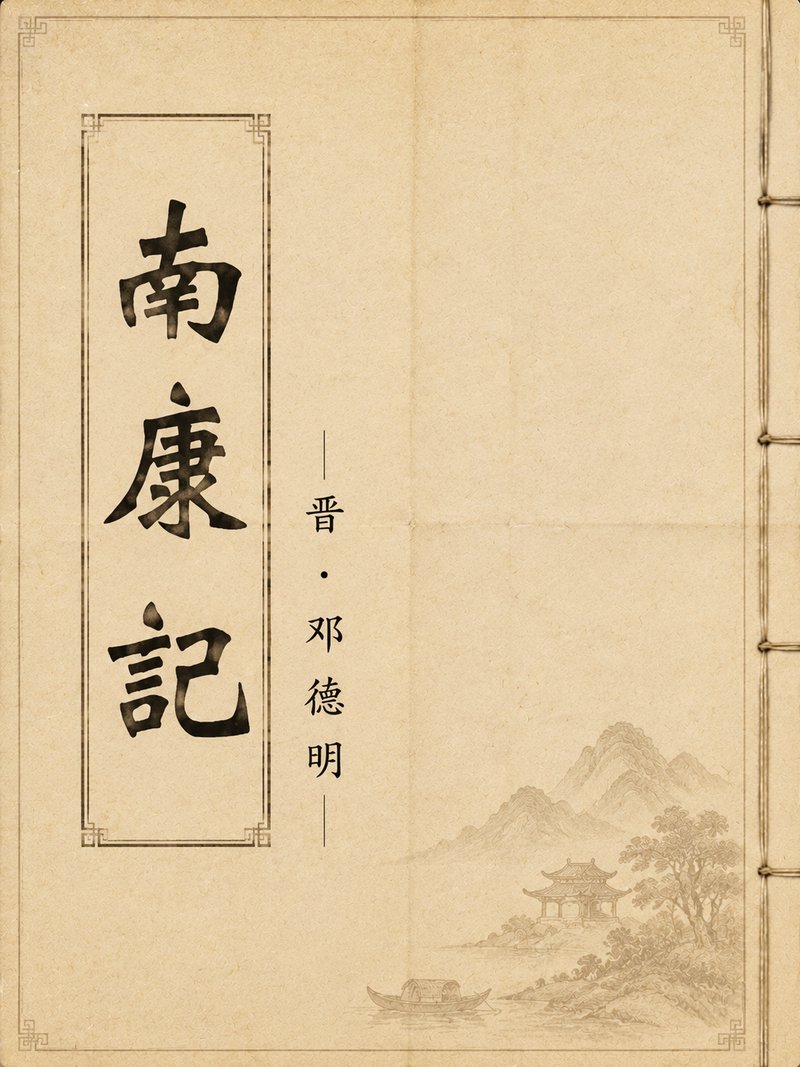 南康記
晋·邓德明